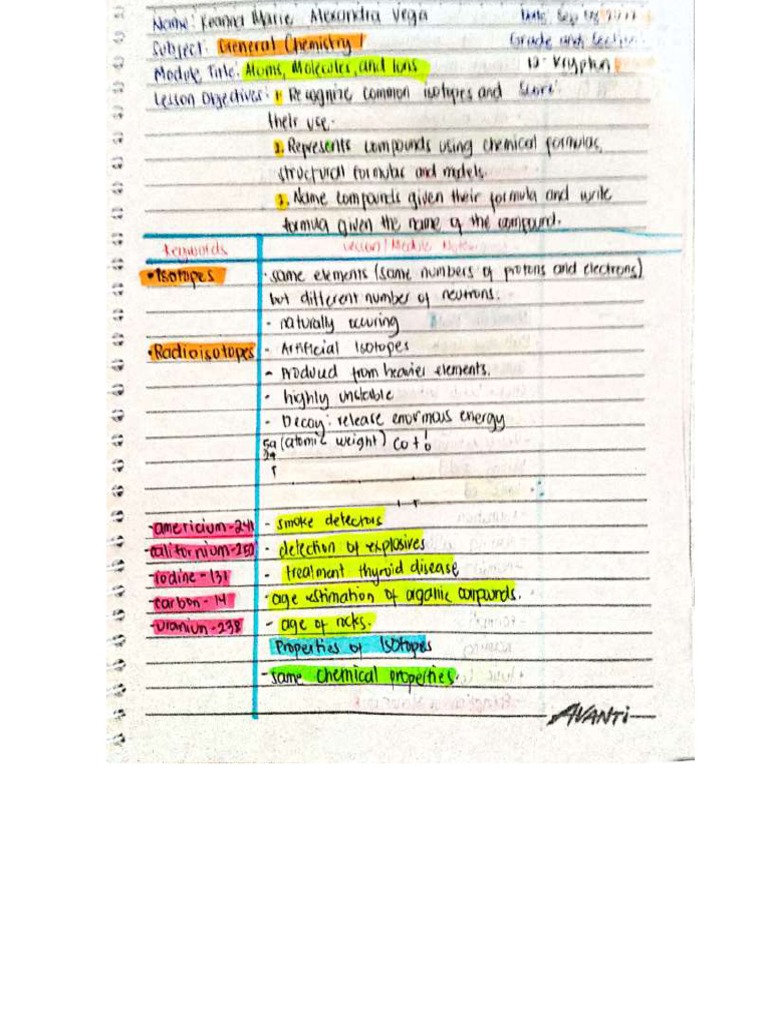 Name: Keanna Marie Alexandra Vega
Subject: General Chemistry 1 Grade and Section:
Module Title: Atoms, Molecules, and Ions 12- Krypton
Lesson Objectives: 1. Recognize common isotopes and Score:
their use.
2. Represents compounds using chemical formulas,
structural formulas and models.
3. Name compounds given their formula and write
formula given the name of the compound.
Keywords Lesson/Module Notes
• Isotopes - same elements (same numbers of protons and electrons)
but different number of neutrons.
- naturally occuring
• Radioisotopes - Artificial Isotopes
- Produced from heavier elements.
- highly unstable
- Decay: release enormous energy
(atomic weight) Co
- americium-241 - smoke detectors
- californium-252 - detection of explosives
- iodine-131 - treatment thyroid disease
- carbon-14 - age estimation of organic compounds.
- uranium-238 - age of rocks.
Properties of Isotopes
- same chemical properties.
AVANTi